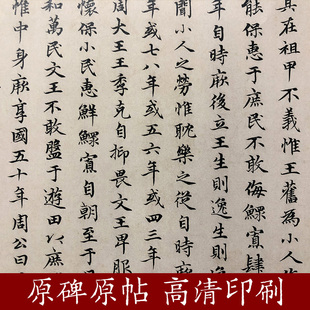 其在祖甲不義惟王舊為小人
能保惠于庶民不敢侮鰥寡肆
年自時厥後立王生則逸生則逸
聞小人之勞惟耽樂之從自時厥
年或七八年或五六年或四三年
周大王王季克自抑畏文王卑服
懷保小民惠鮮鰥寡自朝至于
和萬民文王不敢盤于遊田以庶
惟中身厥享國五十年周公曰
原碑原帖 高清印刷